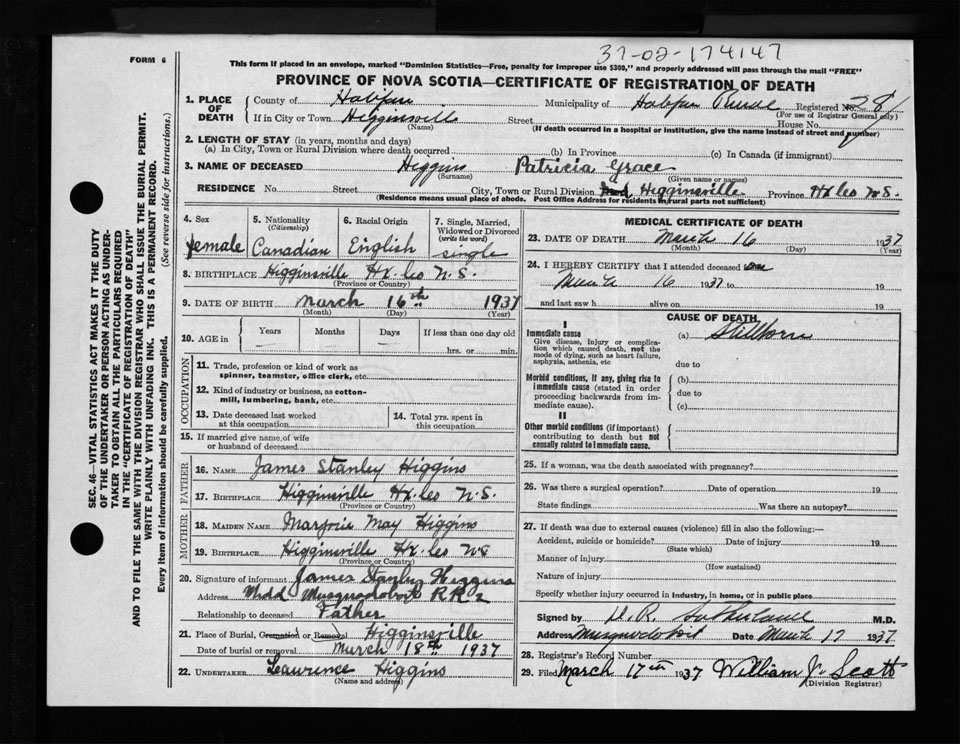 37-02-174147
FORM 6
This form if placed in an envelope, marked "Dominion Statistics—Free, penalty for improper use $300," and properly addressed will pass through the mail "FREE"
PROVINCE OF NOVA SCOTIA—CERTIFICATE OF REGISTRATION OF DEATH
1. PLACE OF DEATH
County of Halifax Municipality of Halifax Rural Registered No. 281
(For use of Registrar General only)
If in City or Town Higginsville Street House No.
(Name) (If death occurred in a hospital or institution, give the name instead of street and number)
2. LENGTH OF STAY (in years, months and days)
(a) In City, Town or Rural Division where death occurred (b) In Province (c) In Canada (if immigrant)
3. NAME OF DECEASED Higgins Patricia Grace
(Surname) (Given name or names)
RESIDENCE No. Street City, Town or Rural Division Higginsville Province Hx Co N.S.
(Residence means usual place of abode. Post Office Address for residents in rural parts not sufficient)
4. Sex
female
5. Nationality
(Citizenship)
Canadian
6. Racial Origin
English
7. Single, Married, Widowed or Divorced
(write the word)
single
8. BIRTHPLACE Higginsville Hx. Co N.S.
(Province or Country)
9. DATE OF BIRTH March 16th 1937
(Month) (Day) (Year)
10. AGE in Years Months Days If less than one day old
hrs. or min.
OCCUPATION
11. Trade, profession or kind of work as spinner, teamster, office clerk, etc.
12. Kind of industry or business, as cotton-mill, lumbering, bank, etc.
13. Date deceased last worked at this occupation
14. Total yrs. spent in this occupation
15. If married give name of wife or husband of deceased
FATHER
16. NAME James Stanley Higgins
17. BIRTHPLACE Higginsville Hx. Co N.S.
(Province or Country)
MOTHER
18. MAIDEN NAME Marjorie May Higgins
19. BIRTHPLACE Higginsville Hx. Co N.S.
(Province or Country)
20. Signature of informant James Stanley Higgins
Address Midd Musquodoboit R R 2
Relationship to deceased Father
21. Place of Burial, Cremation or Removal Higginsville
Date of burial or removal March 18th 1937
22. UNDERTAKER Lawrence Higgins
(Name and address)
MEDICAL CERTIFICATE OF DEATH
23. DATE OF DEATH March 16 1937
(Month) (Day) (Year)
24. I HEREBY CERTIFY that I attended deceased
March 16 1937 to 19
and last saw h alive on 19
CAUSE OF DEATH
I
Immediate cause (a) Stillborn
Give disease, injury or complication which caused death, not the mode of dying, such as heart failure, asphyxia, asthenia, etc
due to
Morbid conditions, if any, giving rise to immediate cause (stated in order proceeding backwards from immediate cause).
(b)
due to
(c)
II
Other morbid conditions (if important) contributing to death but not causally related to immediate cause.
25. If a woman, was the death associated with pregnancy?
26. Was there a surgical operation? Date of operation 19
State findings Was there an autopsy?
27. If death was due to external causes (violence) fill in also the following:—
Accident, suicide or homicide? Date of injury 19
(State which)
Manner of injury
(How sustained)
Nature of injury
Specify whether injury occurred in industry, in home, or in public place
Signed by D. R. Sutherland M.D.
Address Musquodoboit Date March 17 1937
28. Registrar's Record Number
29. Filed March 17th 1937 William J. Scott
(Division Registrar)
SEC. 46—VITAL STATISTICS ACT MAKES IT THE DUTY
OF THE UNDERTAKER OR PERSON ACTING AS UNDER-
TAKER TO OBTAIN ALL THE PARTICULARS REQUIRED
IN THE "CERTIFICATE OF REGISTRATION OF DEATH"
AND TO FILE THE SAME WITH THE DIVISION REGISTRAR WHO SHALL ISSUE THE BURIAL PERMIT.
WRITE PLAINLY WITH UNFADING INK. THIS IS A PERMANENT RECORD.
Every item of information should be carefully supplied. (See reverse side for instructions.)